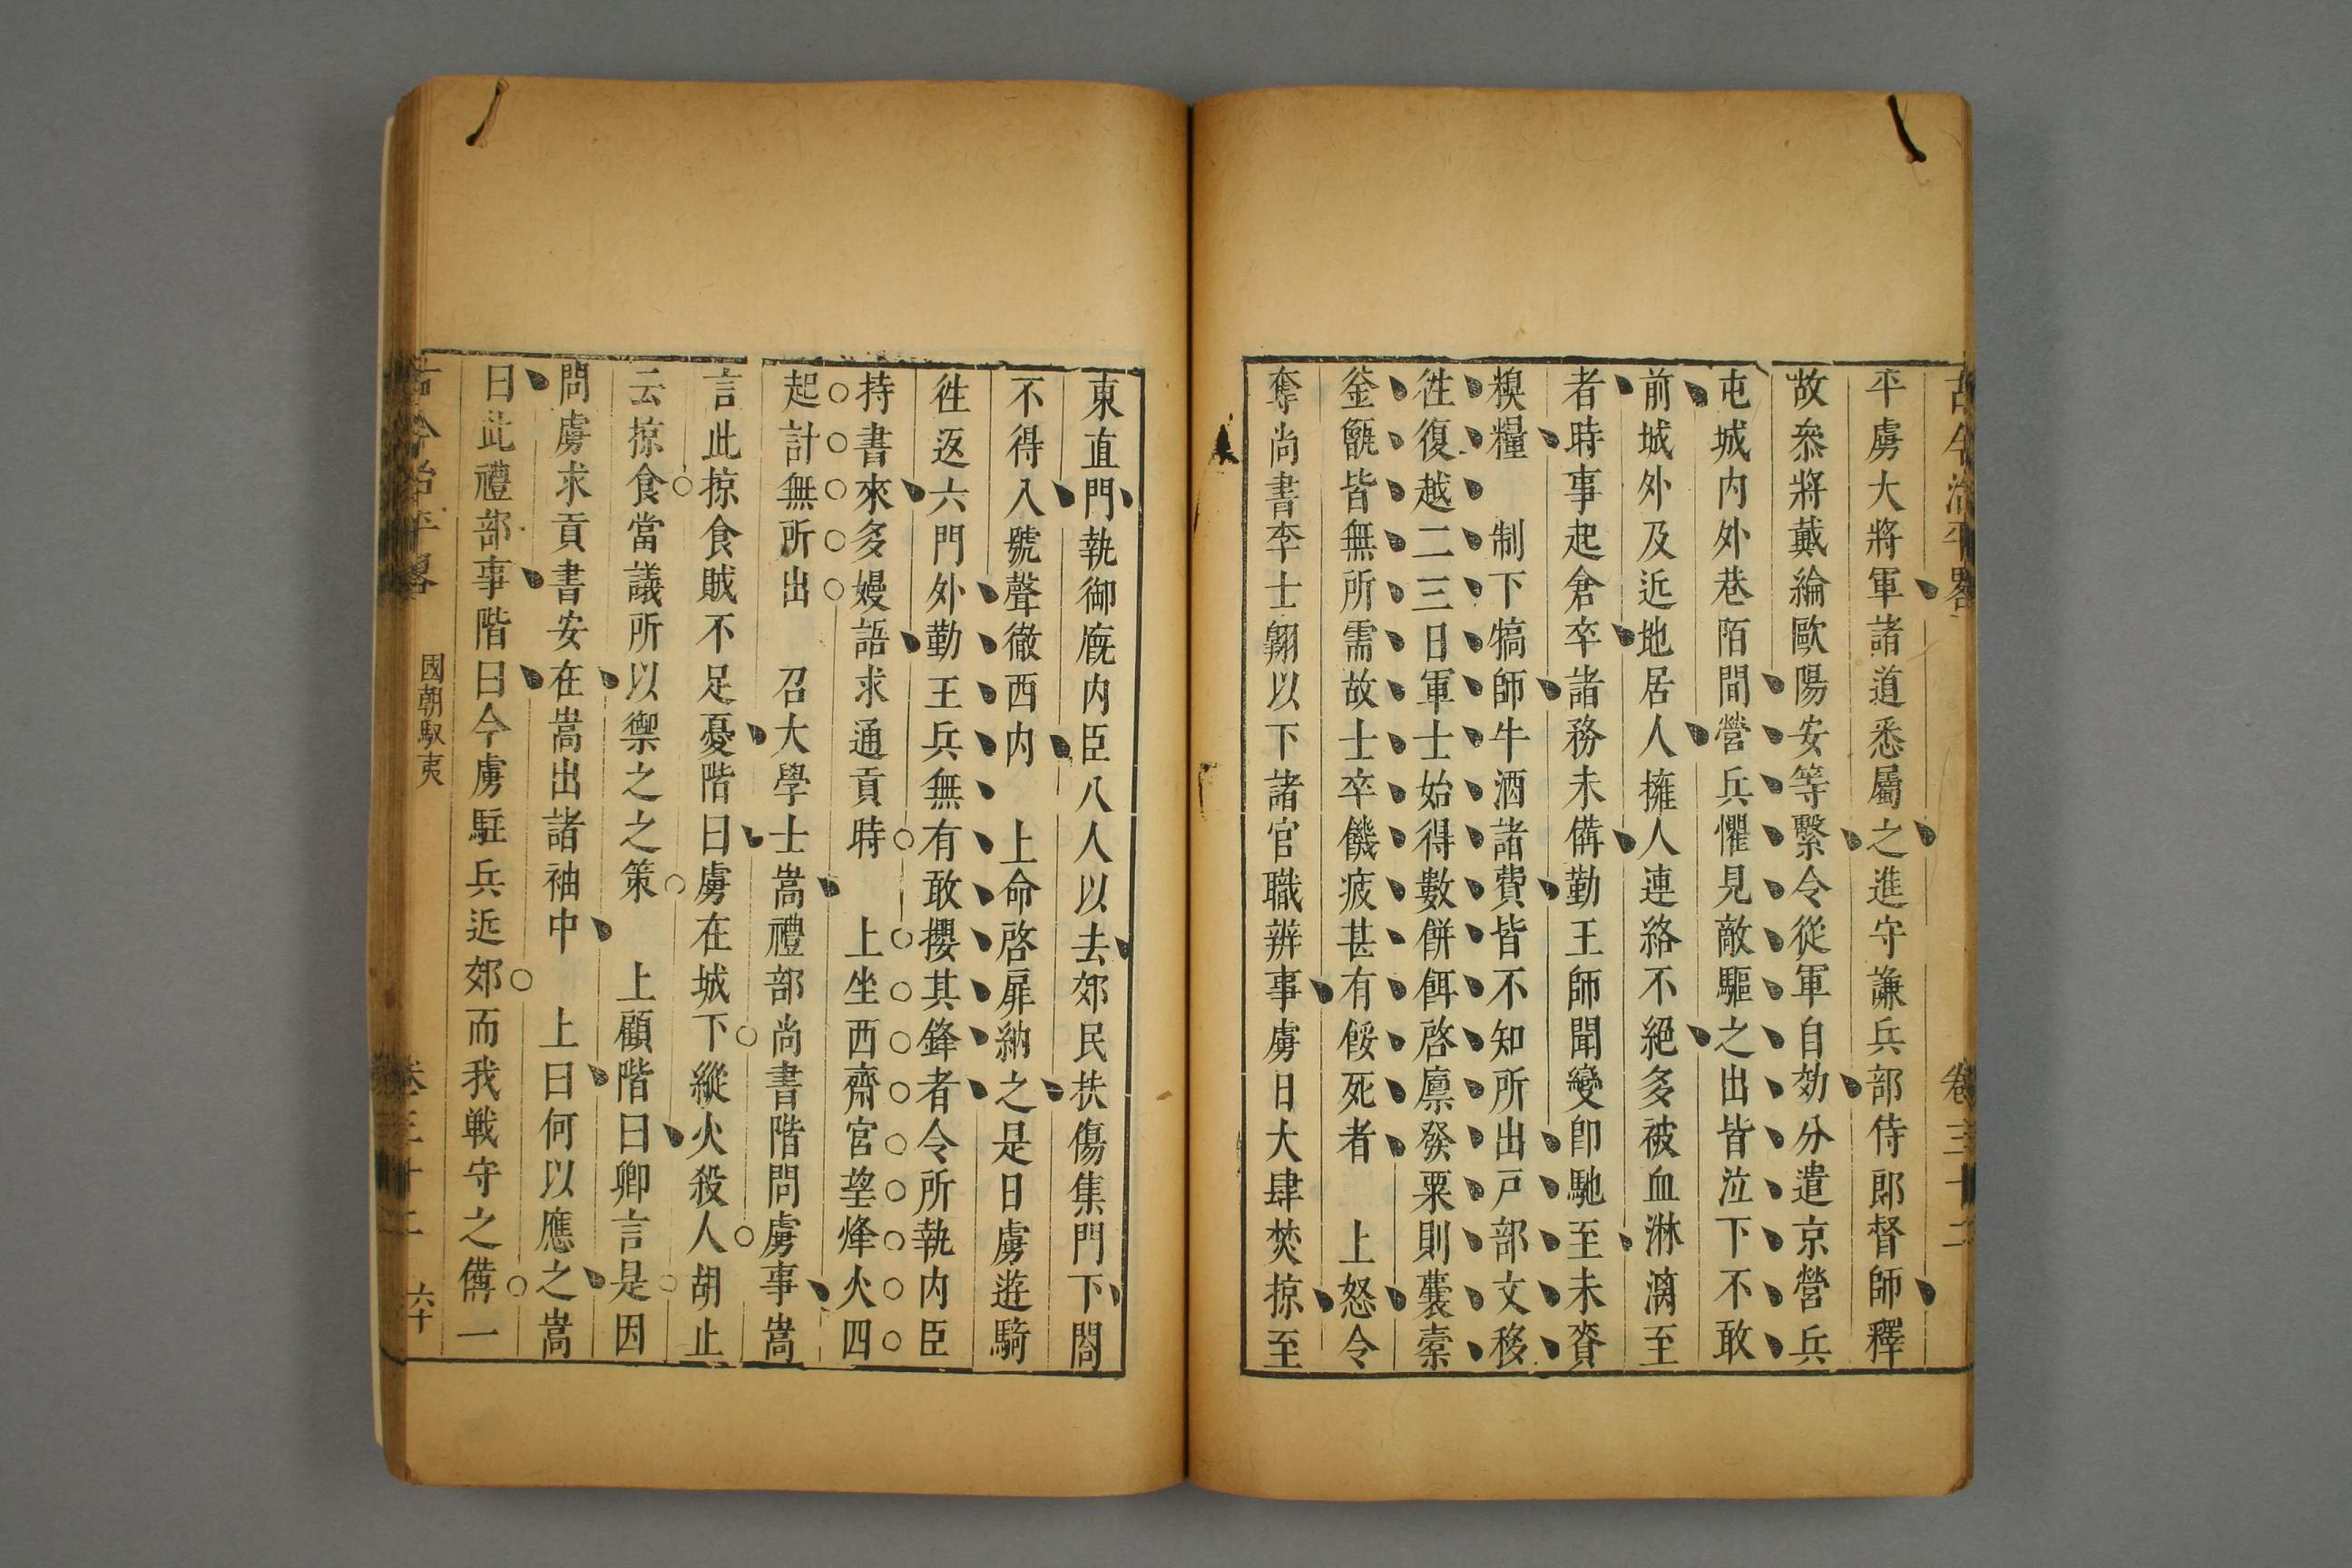 古今治平畧 卷三十二
平虜大將軍諸道悉屬之進守謙兵部侍郎督師釋
故叅將戴綸歐陽安等繫令從軍自効分遣京營兵
屯城内外巷陌間營兵懼見敵驅之出皆泣下不敢
前城外及近地居人擁人連絡不絕多被血淋漓至
者時事起倉卒諸務未備勤王師聞變卽馳至未齎
糗糧 制下犒師牛酒諸費皆不知所出戸部文移
徃復越二三日軍士始得數餅餌啓廪發粟則囊橐
釡甑皆無所需故士卒饑疲甚有餒死者 上怒令
奪尚書李士翺以下諸官職辨事虜日大肆焚掠至
東直門執御廐内臣八人以去郊民扶傷集門下閽
不得入號聲徹西内 上命啓扉納之是日虜遊騎
徃返六門外勤王兵無有敢攖其鋒者令所執内臣
持書來多嫚語求通貢時 上坐西齋宮望烽火四
起計無所出 召大學士嵩禮部尚書階問虜事嵩
言此掠食賊不足憂階曰虜在城下縱火殺人胡止
云掠食當議所以禦之之策 上顧階曰卿言是因
問虜求貢書安在嵩出諸袖中 上曰何以應之嵩
曰此禮部事階曰今虜駐兵近郊而我戰守之備一
古今治平畧 國朝馭夷 卷三十二 六十